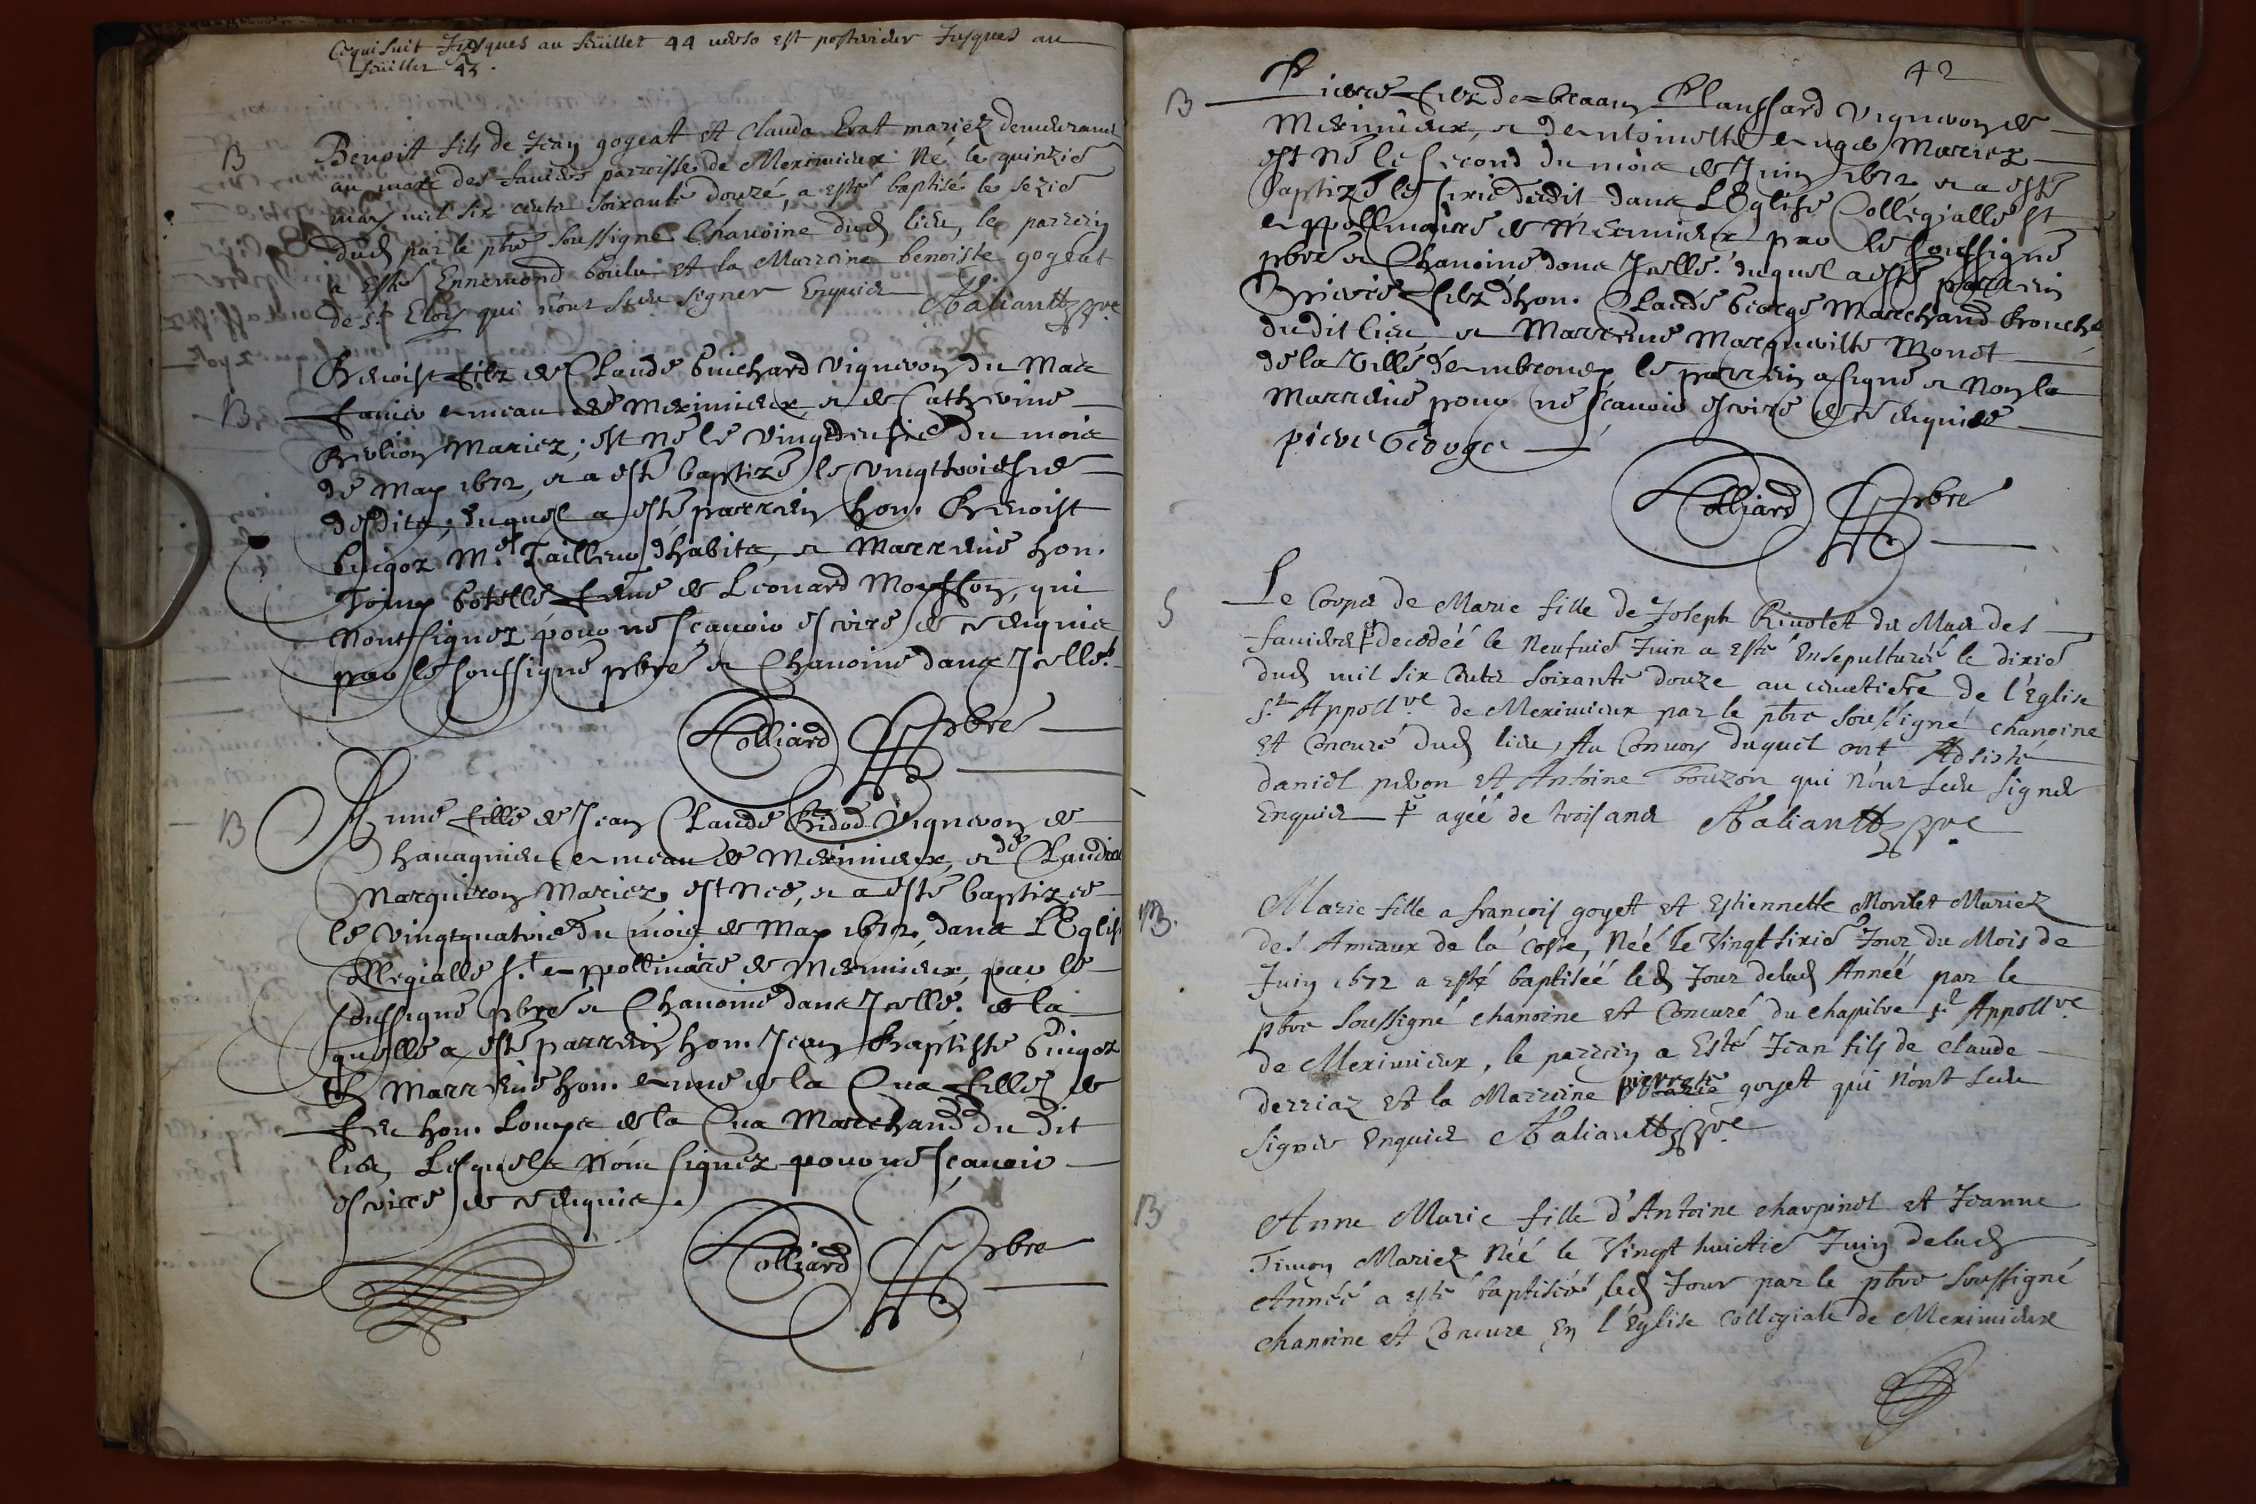 Ce qui suit Jusques au feüillet 44 verso est posterieur Jusques au
feüillet 43.
B
Benoist fils de Jean gogeat et Clauda Erat mariez demeurant
au marc des fauieres parroisse de Meximieux Né le quinzié
may mil six cents soixante douze, a esté baptisé le sezié
dud par le pbre soussigné Chanoine dud lieu, le parrein
a esté Ennemond boulu et la Marreine benoiste gogeat
de St Eloy qui n'ont sceu signer Enquis Aaliantt pbre
B
Benoist filz de Claude Guichard vigneron du Mas
fauier en meau de Meximieux, et de Catherine
Brelion Mariez; est né le vingtdeusié du mois
de May 1672, et a esté baptizé le vingttroiesme
desdits; duquel a esté parrein hon. Benoist
Guigoz Me. Tailleur d'habits, et Marreine hon.
Toiny botelle feme de Leonard Moysson, qui
nont signez pour ne scauoir escrire de ce enquis
par le soussigné pbre et Chanoine dans Jcelle.
Colliard pbre
B
Anne fille de Jean Claude Bidod vigneron de
Chauagnieu en meau de Meximieux, et de Claudine
Marquiron Mariez, est née, et a esté baptizée
le vingtquatrié du mois de May 1672, dans L'Eglise
Collegialle s.t Appollinaire de Meximieux, par le
soussigné pbre et Chanoine dans Jcelle. de la
quelle a esté parrein hon. Jean Baptiste Guigoz
Et Marreine hon. Anne de la Cua fille de
feu hon. Louys de la Cua Marchand du dit
lieu, Lesquels n'ont signez pour ne scauoir
escrire de ce enquis.
Colliard pbre
42
B
Pierre filz de Jean Planssard vigneron de
Meximieux, et d'Antoinette Mariez
est né le second du mois de Juin 1672 et a esté
baptizé le sixié dudit dans L'Eglise Collegialle st
Appollinaire de Meximieux par le soussigné
pbre et Chanoine dans Jcelle. duquel a esté parrein
Pierre filz d'hon. Claude George Marchand
dudit lieu et Marreine Marguerite Monot
de la Ville d'Embronay le parrein a signé et non la
Marreine pour ne scauoir escrire de ce enquise
pierre George
Colliard pbre
S
Le Corps de Marie fille de Joseph Riuolet du Mas des
fauieres decedéé le neufuié Juin a esté Ensepulturéé le dixié
dud mil six cents soixante douze au cimetiere de l'Eglise
s.t Appollre de Meximieux par le pbre soussigné chanoine
et Concuré dud lieu, Au Conuoy duquel ont Adsisté
daniel prebon et Antoine bouzon qui n'ont sceu signer
Enquis agéé de trois ans Aaliantt pbre
B.
Marie fille a francois goyet et Estiennette Morelet Mariez
des Ameaux de la coste, Néé le Vingt sixié Jour du Mois de
Juin 1672 a esté baptiséé led Jour delad Annéé par le
pbre soussigné chanoine et Concuré du chapitre st Appollre
de Meximieux, le parrein a Esté Jean fils de claude
derriaz et la Marreine pierrette goyet qui n'ont sceu
signer Enquis Aaliantt pbre
B
Anne Marie fille d'Antoine charpinel et Jeanne
Timon Mariez Néé le Vingt huictié Juin delad
Annéé a esté baptiséé led Jour par le pbre soussigné
chanoine et Concure En l'Eglise Collegiale de Meximieux